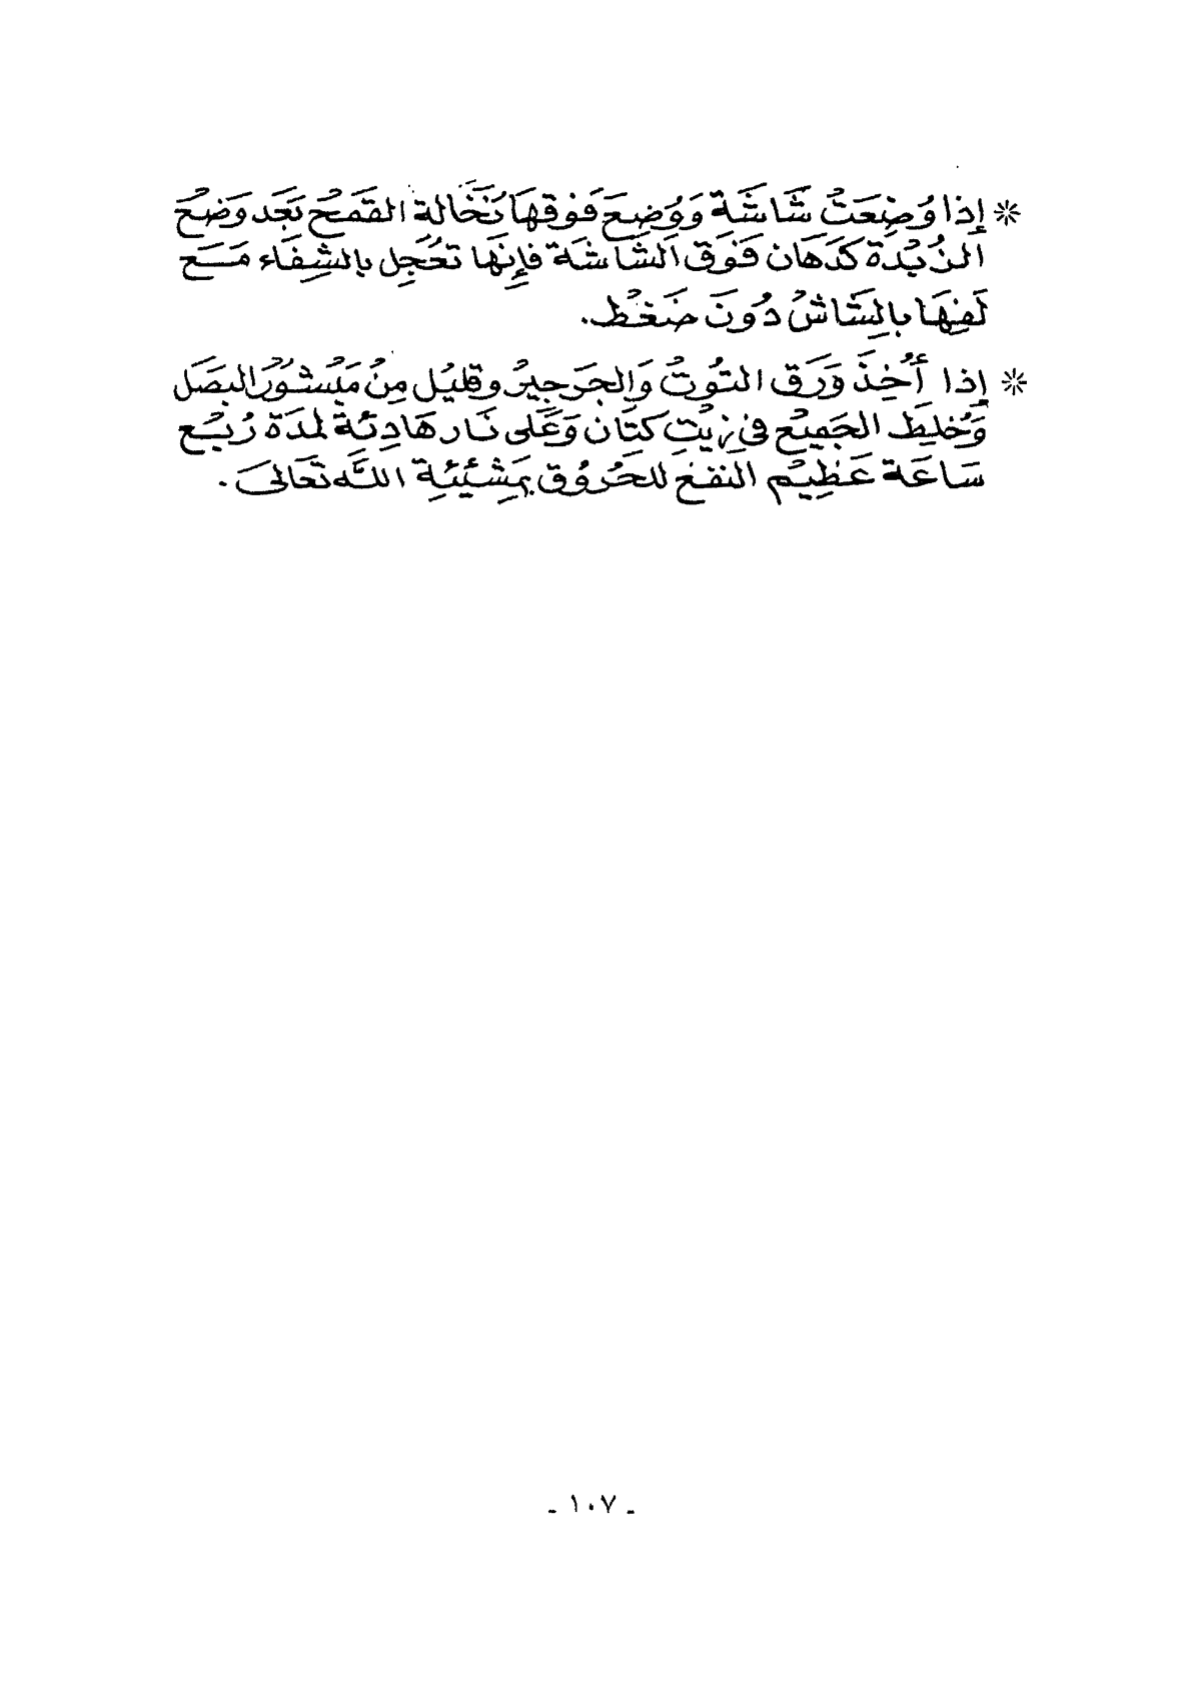 * إِذَا وُضِعَتْ شَاشَة وَوُضِعَ فَوقهَا نُخَالة القَمحْ بَعَد وَضعْ
الزُبْدَة كَدَهَان فَوَق الشَاشَة فإِنهَا تعُجِل بالشِفَاء مَـع
لَفِهَا بالِشَاشْ دُونَ ضَغطْ.
* إِذا أُخِذَ وَرَق التوُتْ وَالجَرجِيرْ وقليُل مِنْ مَبْشوُرْ البصَل
وَخُلِطَ الجَميْع في زيْتِ كتَان وَعَلى نَار هَادِئة لمدَة رُبْـع
سَاعَة عَظِيمْ النفع للحُروُق بمَشِيئَةِ اللَّه تعَالىَ.
- ١٠٧ -